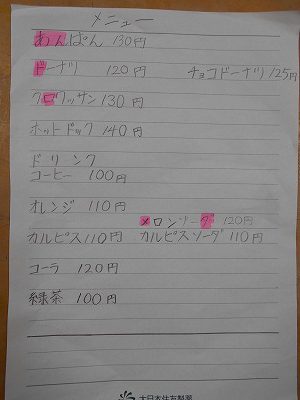 メニュー
あんぱん 130円
ドーナツ 120円 チョコドーナツ 125円
クロワッサン 130円
ホットドック 140円
ドリンク
コーヒー 100円
オレンジ 110円
メロンソーダ 120円
カルピス 110円 カルピスソーダ 110円
コーラ 120円
緑茶 100円
大日本住友製薬